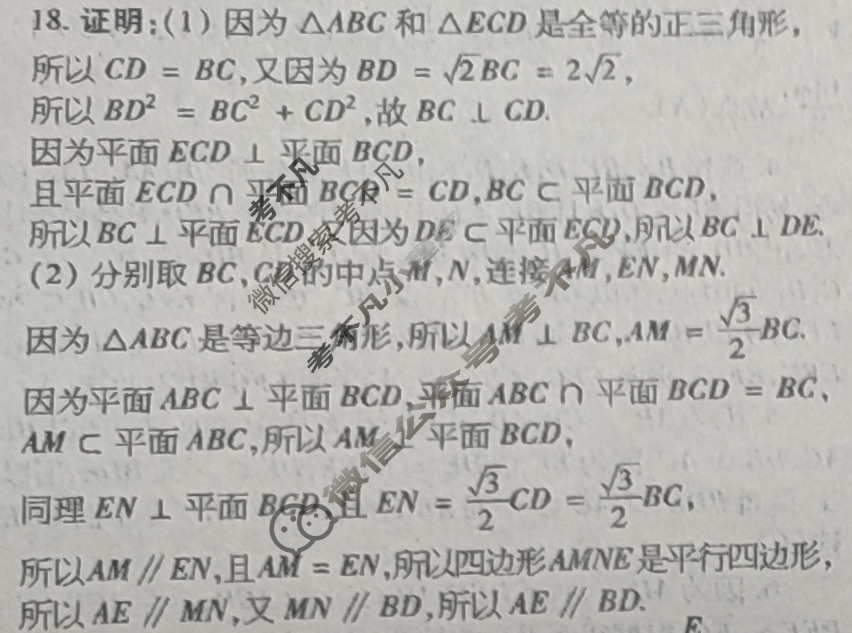 18. 证明:(1) 因为 △ABC 和 △ECD 是全等的正三角形,
所以 CD = BC,又因为 BD = √2BC = 2√2,
所以 BD² = BC² + CD²,故 BC ⊥ CD.
因为平面 ECD ⊥ 平面 BCD,
且平面 ECD ∩ 平面 BCD = CD,BC ⊂ 平面 BCD,
所以 BC ⊥ 平面 ECD,又因为 DE ⊂ 平面 ECD,所以 BC ⊥ DE.
(2) 分别取 BC,CD 的中点 M,N,连接 AM,EN,MN.
因为 △ABC 是等边三角形,所以 AM ⊥ BC,AM = √3/2 BC.
因为平面 ABC ⊥ 平面 BCD,平面 ABC ∩ 平面 BCD = BC,
AM ⊂ 平面 ABC,所以 AM ⊥ 平面 BCD,
同理 EN ⊥ 平面 BCD,且 EN = √3/2 CD = √3/2 BC,
所以 AM // EN,且 AM = EN,所以四边形 AMNE 是平行四边形,
所以 AE // MN,又 MN // BD,所以 AE // BD.
E
考不凡
微信搜索考不凡
考不凡小
微信公众号考不凡